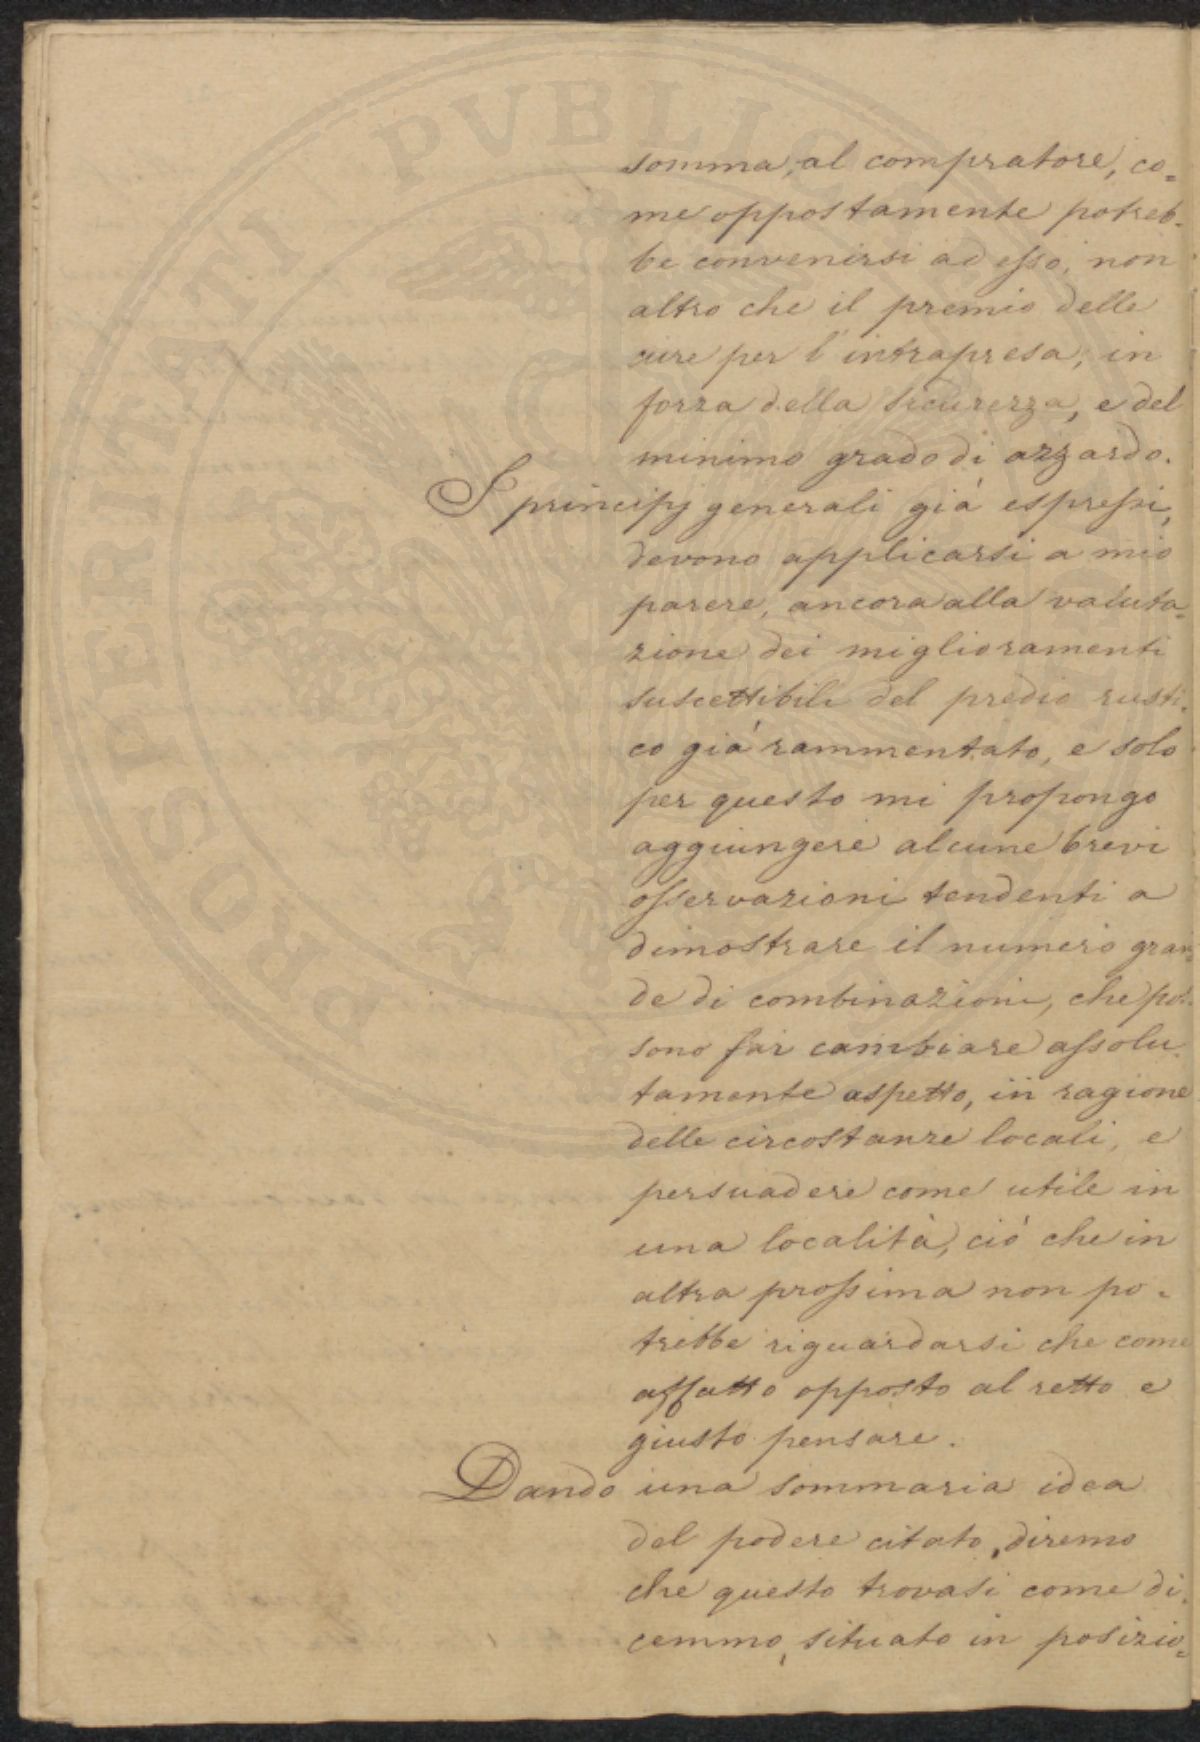 somma, al compratore, co=
me oppostamente potreb-
be convenirsi ad esso, non
altro che il premio delle
cure per l'intrapresa, in
forza della sicurezza, e del
minimo grado di azzardo.
I principj generali giá espressi,
devono applicarsi a mio
parere, ancora alla valuta=
zione dei miglioramenti
suscettibili del predio rusti-
co giá rammentato, e solo
per questo mi propongo
aggiungere alcune brevi
osservazioni tendenti a
dimostrare il numero gran=
de di combinazioni, che pos-
sono far cambiare assolu-
tamente aspetto, in ragione
delle circostanze locali, e
persuadere come utile in
una localitá, ció che in
altra prossima non po-
trebbe riguardarsi che come
affatto opposto al retto e
giusto pensare.
Dando una sommaria idea
del podere citato, diremo
che questo trovasi come di-
cemmo, situato in posizio=
PROSPERITATI PVBLIC